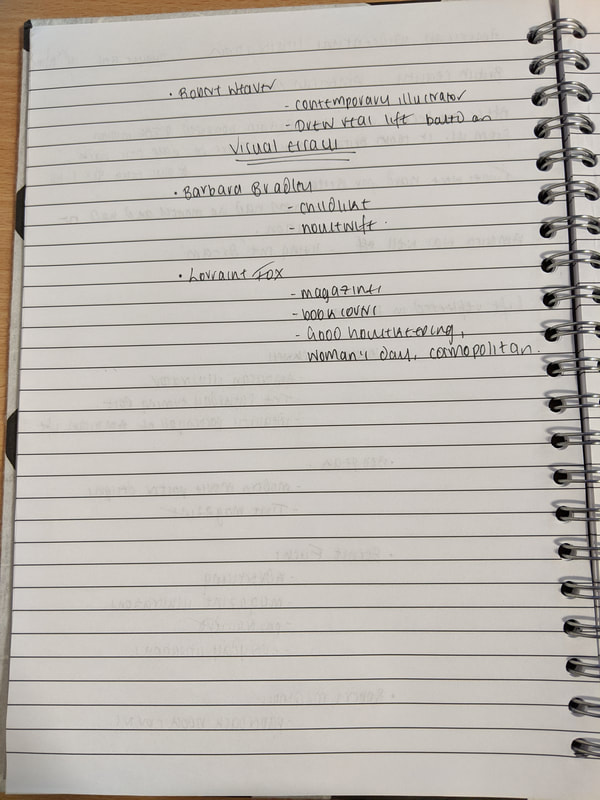 • Robert Weaver
- contemporary illustrator
- Drew real life based on
Visual essays
• Barbara Bradley
- childlike
- housewife.
• Lorraine Fox
- magazines
- book covers
- Good housekeeping,
woman's day, cosmopolitan.